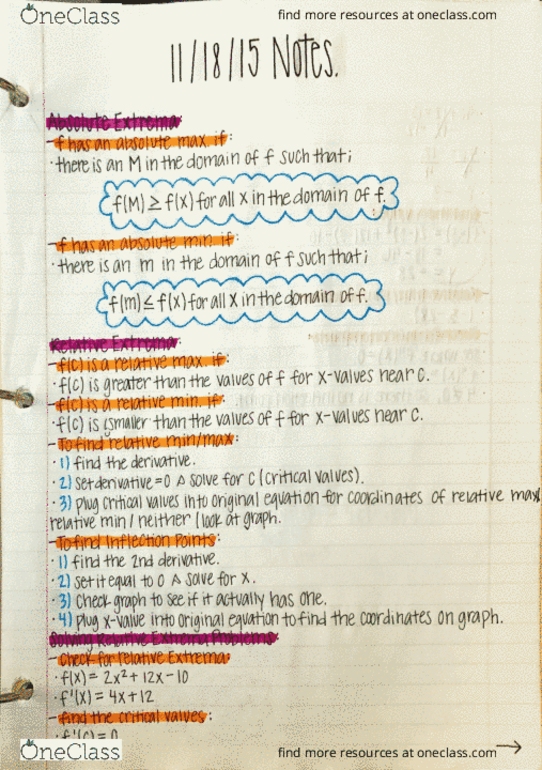 OneClass find more resources at oneclass.com
11/18/15 Notes.
Absolute Extrema:
-f has an absolute max if:
· there is an M in the domain of f such that;
f(M) ≥ f(x) for all x in the domain of f.
-f has an absolute min if:
· there is an m in the domain of f such that;
f(m) ≤ f(x) for all x in the domain of f.
Relative Extrema:
-f(c) is a relative max if:
· f(c) is greater than the values of f for x-values near c.
-f(c) is a relative min if:
· f(c) is smaller than the values of f for x-values near c.
-To find relative min/max:
· 1) find the derivative.
· 2) set derivative = 0 & solve for c (critical values).
· 3) plug critical values into original equation for coordinates of relative max/
relative min / neither / look at graph.
-To find Inflection Points:
· 1) find the 2nd derivative.
· 2) set it equal to 0 & solve for x.
· 3) Check graph to see if it actually has one.
· 4) plug x-value into original equation to find the coordinates on graph.
Solving Relative Extrema Problems:
- Check for relative Extrema:
· f(x) = 2x² + 12x - 10
· f'(x) = 4x + 12
- find the critical values:
· f'(c) = 0
OneClass find more resources at oneclass.com